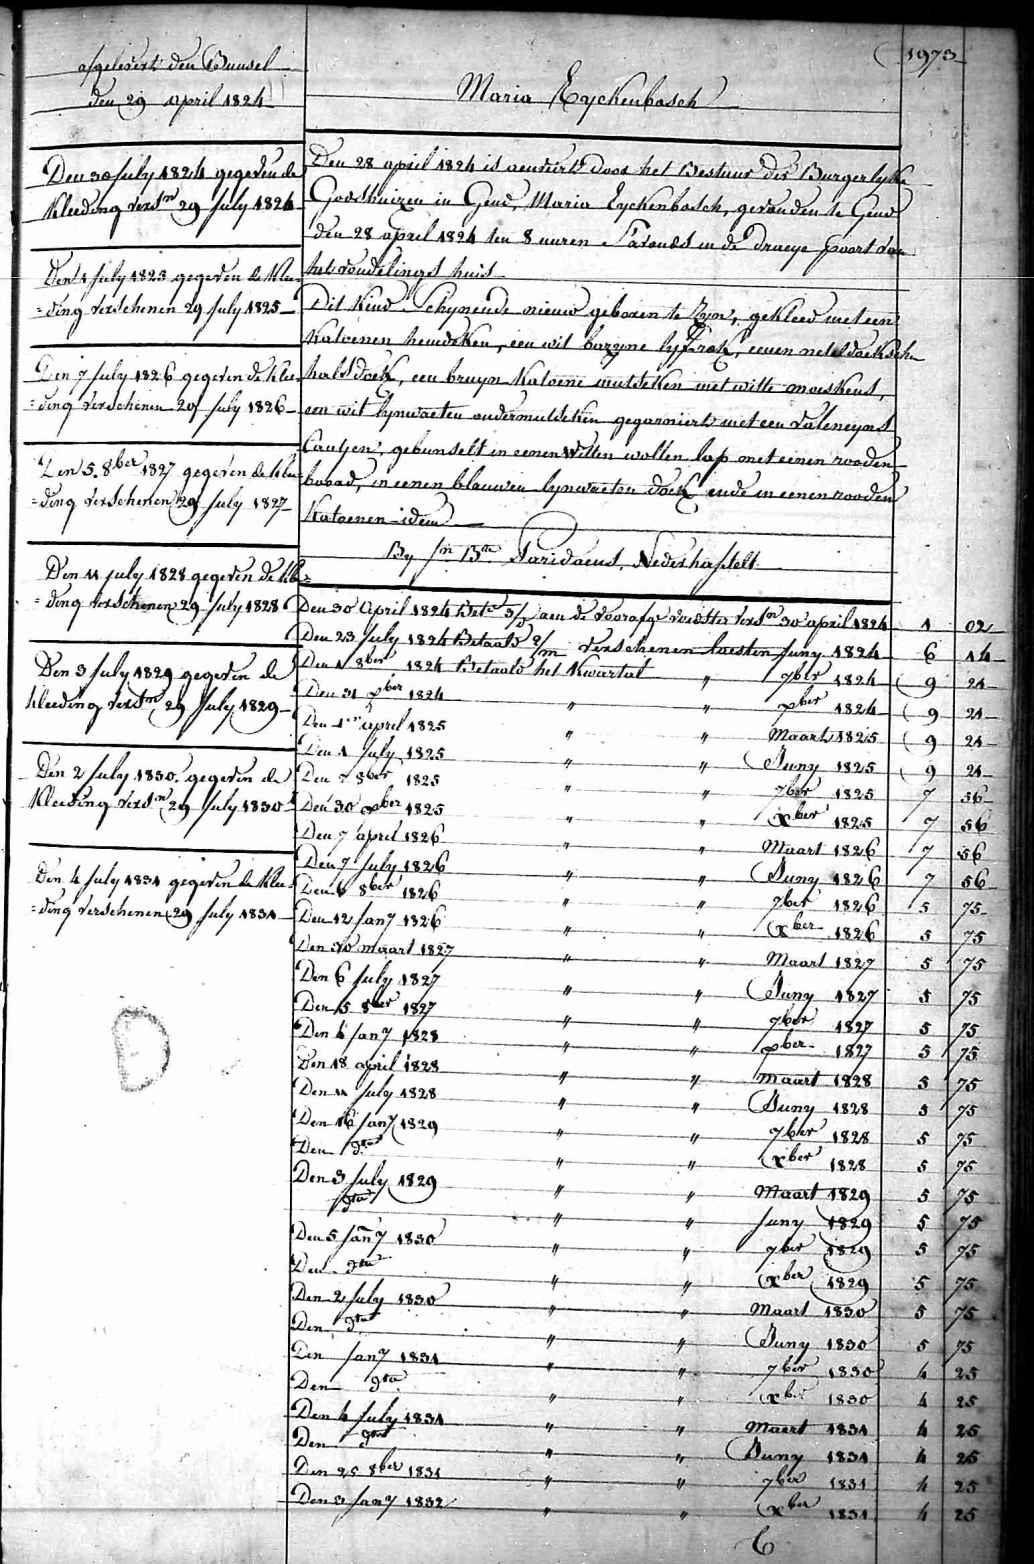 1973
afgelevert den Bunsel
den 29 April 1824
Maria Eyckenbosch
Den 30 July 1824 gegeven de
Kleeding versn 29 July 1824
Den 1 July 1825 gegeven de Klee-
=ding verschenen 29 July 1825
Den 7 July 1826 gegeven de klee-
=ding verschenen 29 July 1826
Den 5. 8ber 1827 gegeven de klee-
=ding verschenen 29 July 1827
Den 11 july 1828 gegeven de kle=
=ding verschenen 29 July 1828
Den 3 July 1829 gegeven de
kleeding versn 29 July 1829
Den 2 July 1830 gegeven de
Kleeding versn 29 July 1830
Den 4 July 1831 gegeven de Klee-
=ding verschenen 29 July 1831
Den 28 april 1824 is aenveirt door het Bestuur der Burgerlyke
Godshuizen in Gend, Maria Eyckenbosch, gevonden te Gend
den 28 april 1824 ten 8 uuren S'avonds in de draeye poort van
het vondelings huis
Dit Kind Schynende nieuw geboren te Zyn, gekleed met een
Katoenen hemdeken, een wit bazyne lyfrok, eenen neteldoeksche
halsdoek, een bruyn Katoene mutseken met witte moeskens,
een wit lynwaeten ondermutseken gegarniert met een valencyns
Cantjen, gebunselt in eenen witten wollen lap met einen rooden
boord, in eenen blauwen lynwaeten doek ende in eenen rooden
Katoenen idem
By Jn Bte Paridaens, Nederhasselt
Den 30 April 1824 Betd 3/ aen de voorafge voedster versn 30 april 1824 1 02
Den 23 July 1824 Betaald 2/m verschenen laesten Juny 1824 6 14
Den 1 8ber 1824 Betaald het Kwartal " 7ber 1824 9 21
Den 31 xber 1824 " " xber 1824 9 21
Den 1n april 1825 " " Maart 1825 9 21
Den 1 July 1825 " " Juny 1825 9 21
Den 7 8ber 1825 " " 7ber 1825 7 56
Den 30 xber 1825 " " xber 1825 7 56
Den 7 april 1826 " " Maart 1826 7 56
Den 7 July 1826 " " Juny 1826 7 56
Den 6 8ber 1826 " " 7ber 1826 5 75
Den 12 Jany 1826 " " xber 1826 5 75
Den 30 maart 1827 " " Maart 1827 5 75
Den 6 July 1827 " " Juny 1827 5 75
Den 5 8ber 1827 " " 7ber 1827 5 75
Den 4 Jany 1828 " " xber 1827 5 75
Den 18 april 1828 " " Maart 1828 5 75
Den 11 July 1828 " " Juny 1828 5 75
Den 16 Jany 1829 " " 7ber 1828 5 75
Den dto " " xber 1828 5 75
Den 3 July 1829 " " Maart 1829 5 75
dto " " Juny 1829 5 75
Den 5 Jany 1830 " " 7ber 1829 5 75
Den dto " " xber 1829 5 75
Den 2 July 1830 " " Maart 1830 5 75
Den dto " " Juny 1830 5 75
Den Jany 1831 " " 7ber 1830 4 25
Den dto " " xber 1830 4 25
Den 4 July 1831 " " Maart 1831 4 25
Den dto " " Juny 1831 4 25
Den 25 8ber 1831 " " 7ber 1831 4 25
Den 3 Jany 1832 " " xber 1831 4 25